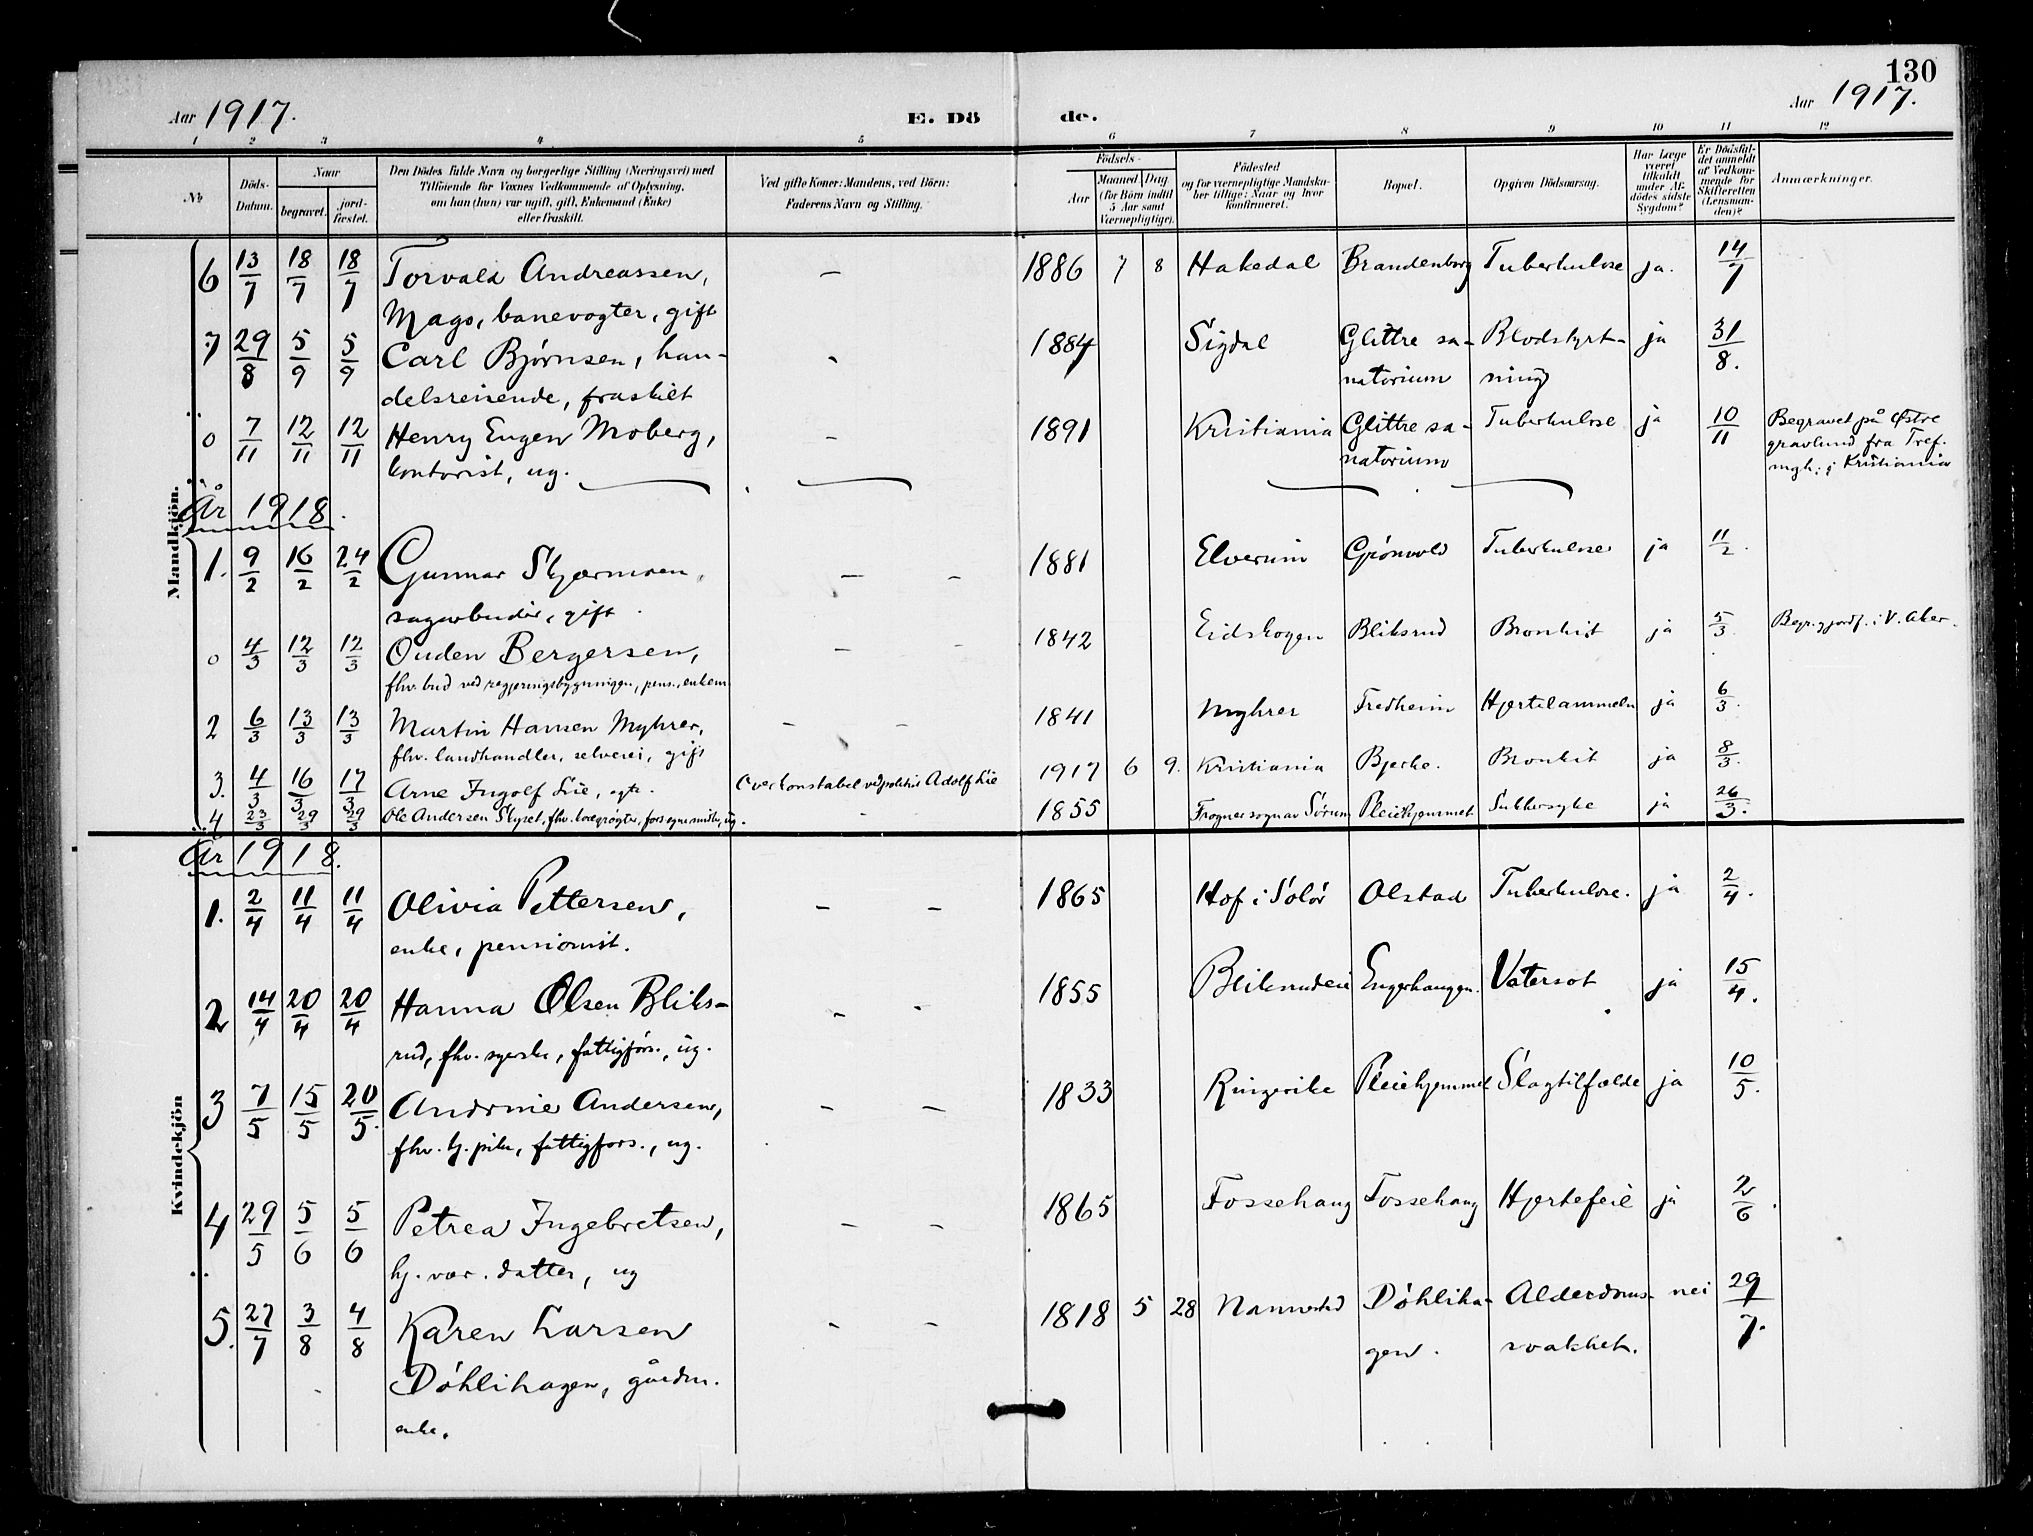 130
Aar 1917. E. Dö de. Aar 1917.
1 2 3 4 5 6 7 8 9 10 11 12
No. Döds-Datum. Naar begravet. jord-fæstet. Den Dödes fulde Navn og borgerlige Stilling (Næringsvei) med Tilföiende for Voxnes Vedkommende af Oplysning, om han (hun) var ugift, gift, Enkemand (Enke) eller fraskilt. Ved gifte Koner: Mandens, ved Börn: Faderens Navn og Stilling. Födsels- Aar Maaned Dag (for Börn indtil 5 Aar samt Værnepligtige). Födested og for værnepligtige Mandskaber tillige: Naar og hvor konfirmeret. Bopæl. Opgiven Dödsaarsag. Har Læge været tilkaldt under Afdödes sidste Sygdom? Er Dödsfaldet anmeldt af Vedkommende for Skifteretten (Lensmanden)? Anmærkninger.
Mandkjön.
6 13/7 18/7 18/7 Torvald Andreassen, — 1886 7 8 Hakedal Brandenborg Tuberkulose ja. 14/7
Mago, banevogter, gift
7 29/8 5/9 5/9 Carl Bjørnsen, han- - 1884 Sigdal Glittre sa- Blodstyrt- ja 31/8.
delsreisende, fraskilt natorium ning
0 7/11 12/11 12/11 Henry Eugen Moberg, - 1891 Kristiania Glittre sa- Tuberkulose ja 10/11 Begravet på Østre
kontorist, ug. natorium gravlund fra Tref.
mgh. i Kristiania
År 1918.
1. 9/2 16/2 24/2 Gunnar Skjærmoen, — - 1881 Elverum Grønvold Tuberkulose ja 11/2.
sagarbeider, gift
0 4/3 12/3 12/3 Ouden Bergersen, - - 1842 Eidskogen Bliksrud Bronkit ja 5/3. Begr. gjordf. i V. Aker.
fhv. bud ved regjeringsbygningen, pens., enkem
2 6/3 13/3 13/3 Martin Hansen Myhrer, - - 1841 Myhrer Fredheim Hjertelammelse ja 6/3.
fhv. landhandler, selveier, gift
3. 4/3 16/3 17/3 Arne Ingolf Lie, egte. Overkonstabel ved politiet Adolf Lie 1917 6 9. Kristiania Bjerke. Bronkit ja 8/3.
4 23/3 29/3 29/3 Ole Andersen Skyset, fhv. torvgrøgter, fors. egne midler, ug. - - 1855 Frogner sogn av Sørum Pleiehjemmet Sukkersyke ja 26/3.
Kvindekjön
År 1918.
1. 2/4 11/4 11/4 Olivia Pettersen, — - 1865 Hof i Solør Olstad Tuberkulose. ja 2/4.
enke, pensionist.
2 14/4 20/4 20/4 Hanna Olsen Bliks- - - 1855 Bliksrudeie Engerhaugen. Vatersot ja 15/4.
rud, fhv. syerske, fattigfors., ug.
3 7/5 15/5 20/5. Andrine Andersen, - — 1833 Ringerike Pleiehjemmet Slagtilfælde ja 10/5.
fhv. tj. pike, fattigfors., ug.
4 29/5 5/6 5/6 Petrea Ingebretsen, - - 1865 Fossehaug Fossehaug Hjertefeil ja 2/6.
hj. vær. datter, ug
5. 27/7 3/8 4/8 Karen Larsen - - 1818 5 28 Nannestad Döhliha- Alderdoms- nei 29/7.
Döhlihagen, gårdm. gen. svakhet.
enke.